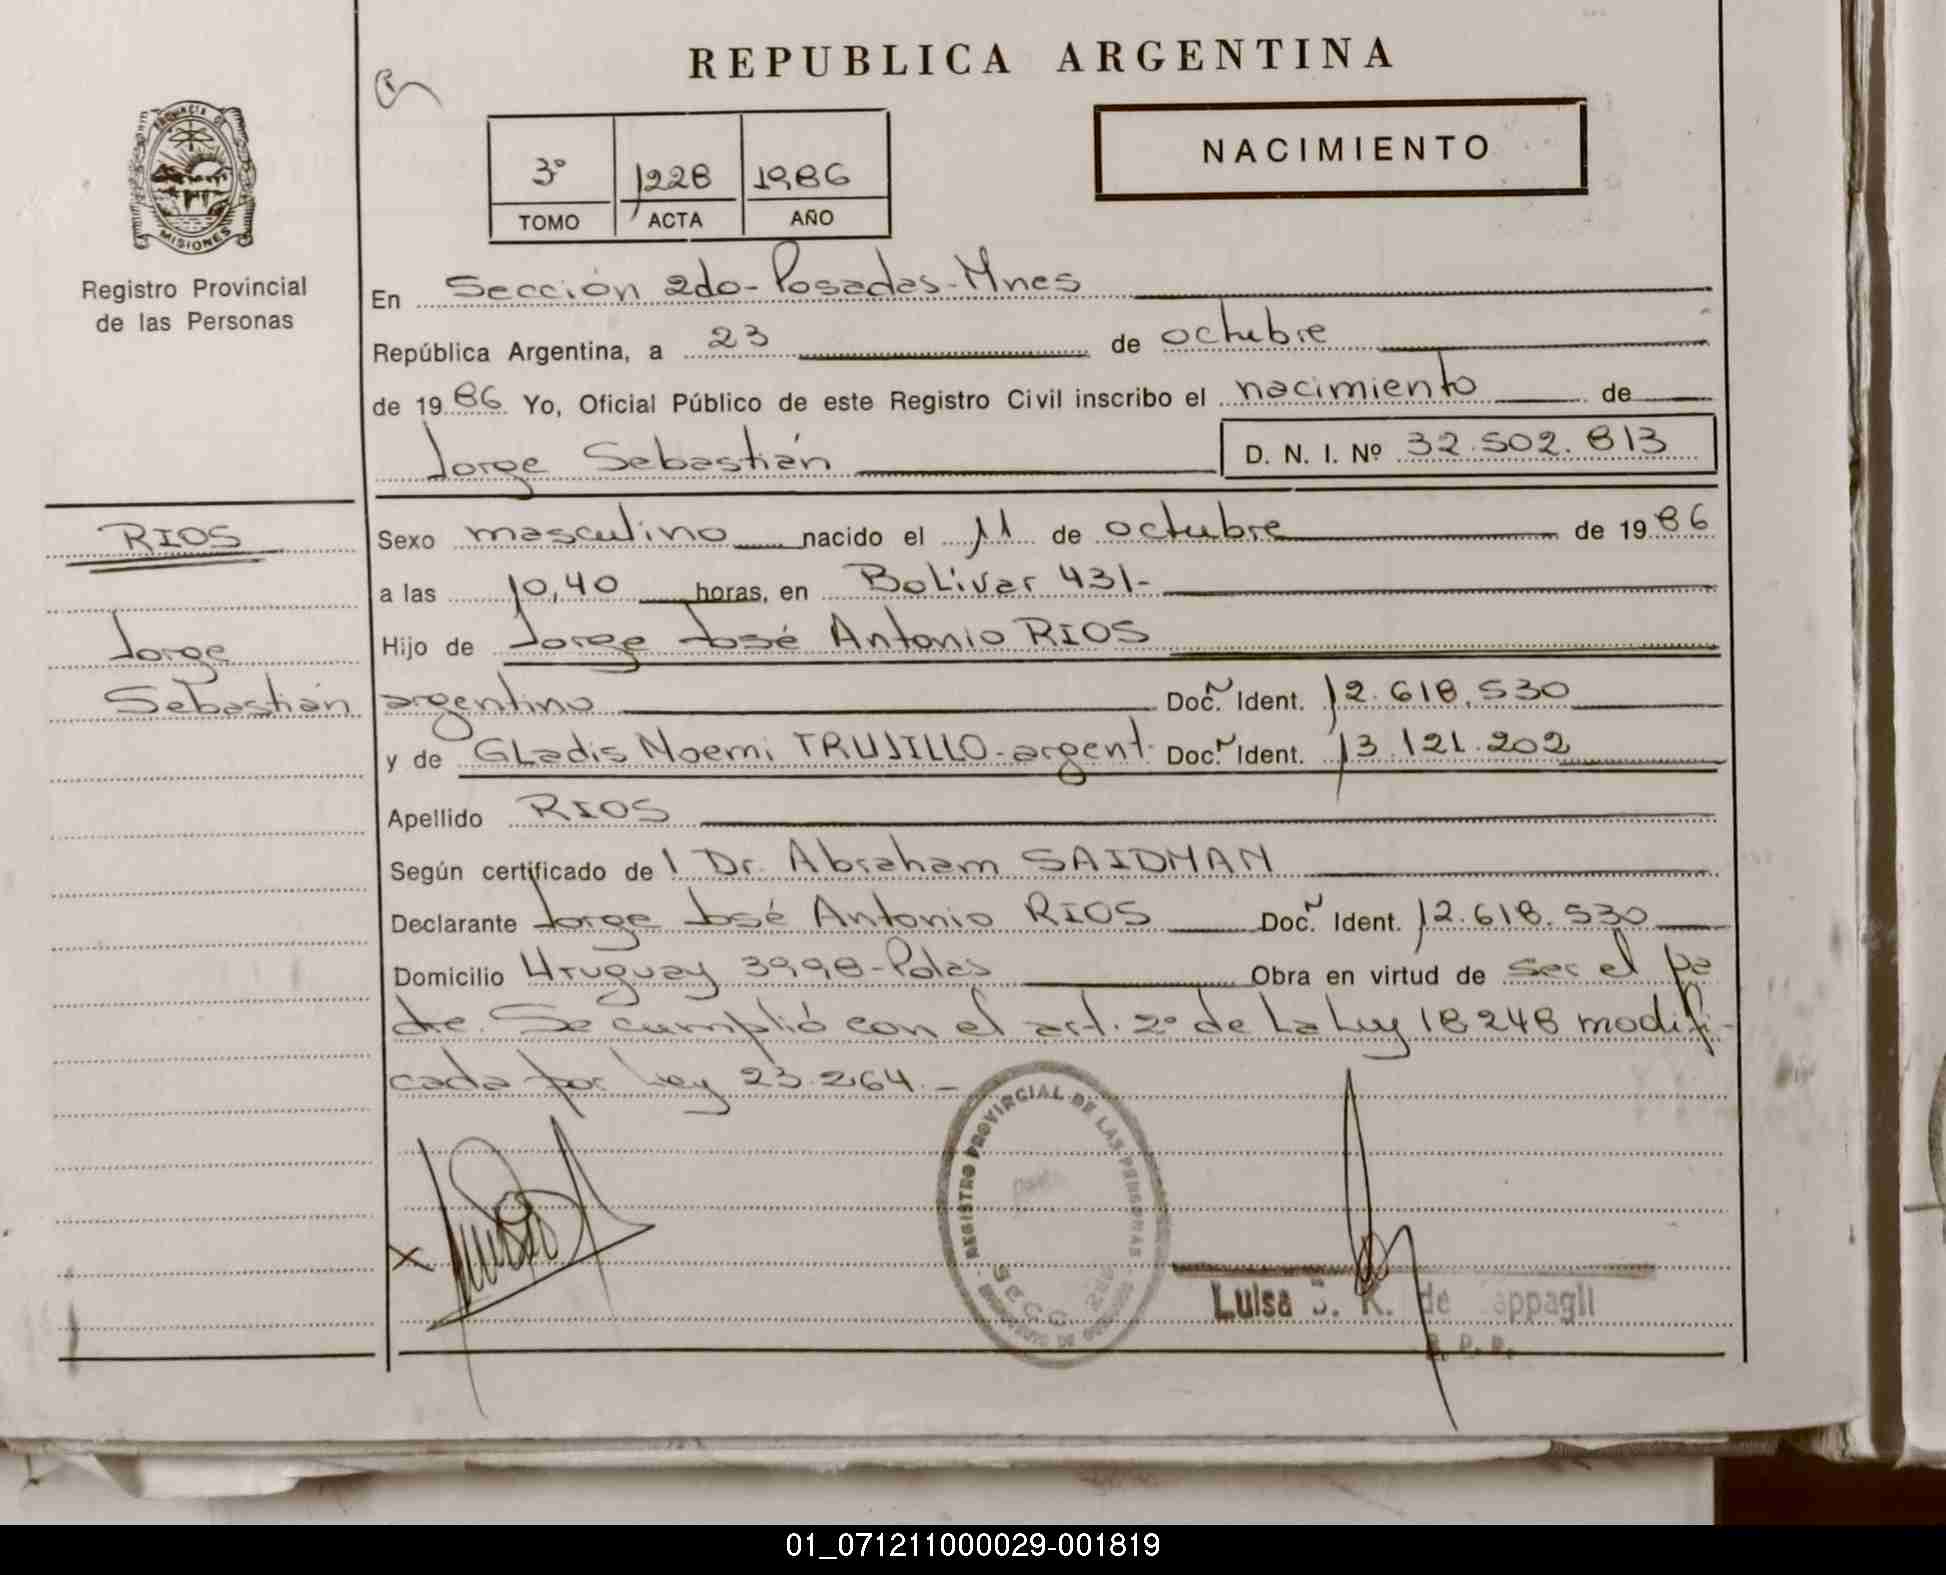 REPUBLICA ARGENTINA
PROVINCIA DE
MISIONES
Registro Provincial
de las Personas
3º 1228 1986
TOMO ACTA AÑO
NACIMIENTO
En Sección 2do-Posadas-Mnes
República Argentina, a 23 de octubre
de 1986 Yo, Oficial Público de este Registro Civil inscribo el nacimiento de
Jorge Sebastián D. N. I. Nº 32.502.813
RIOS
Jorge
Sebastián
Sexo masculino nacido el 11 de octubre de 1986
a las 10,40 horas, en Bolivar 431-
Hijo de Jorge José Antonio RIOS
argentino Doc. Ident. 12.618.530
y de Gladis Noemi TRUJILLO-argent. Doc. Ident. 13.121.202
Apellido RIOS
Según certificado del Dr. Abraham SAIDMAN
Declarante Jorge José Antonio RIOS Doc. Ident. 12.618.530
Domicilio Uruguay 3998-Pdas Obra en virtud de ser el pa
dre. Se cumplió con el art. 2º de La Ley 18248 modifi-
cada por Ley 23.264.-
REGISTRO PROVINCIAL DE LAS PERSONAS
SECC. 2da
Luisa S. K. de
01_071211000029-001819